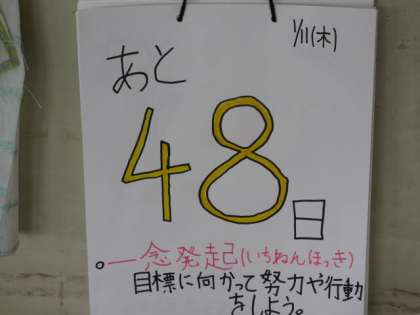 1/11(木)
あと
48
日
。一念発起(いちねんほっき)
目標に向かって努力や行動
をしよう。